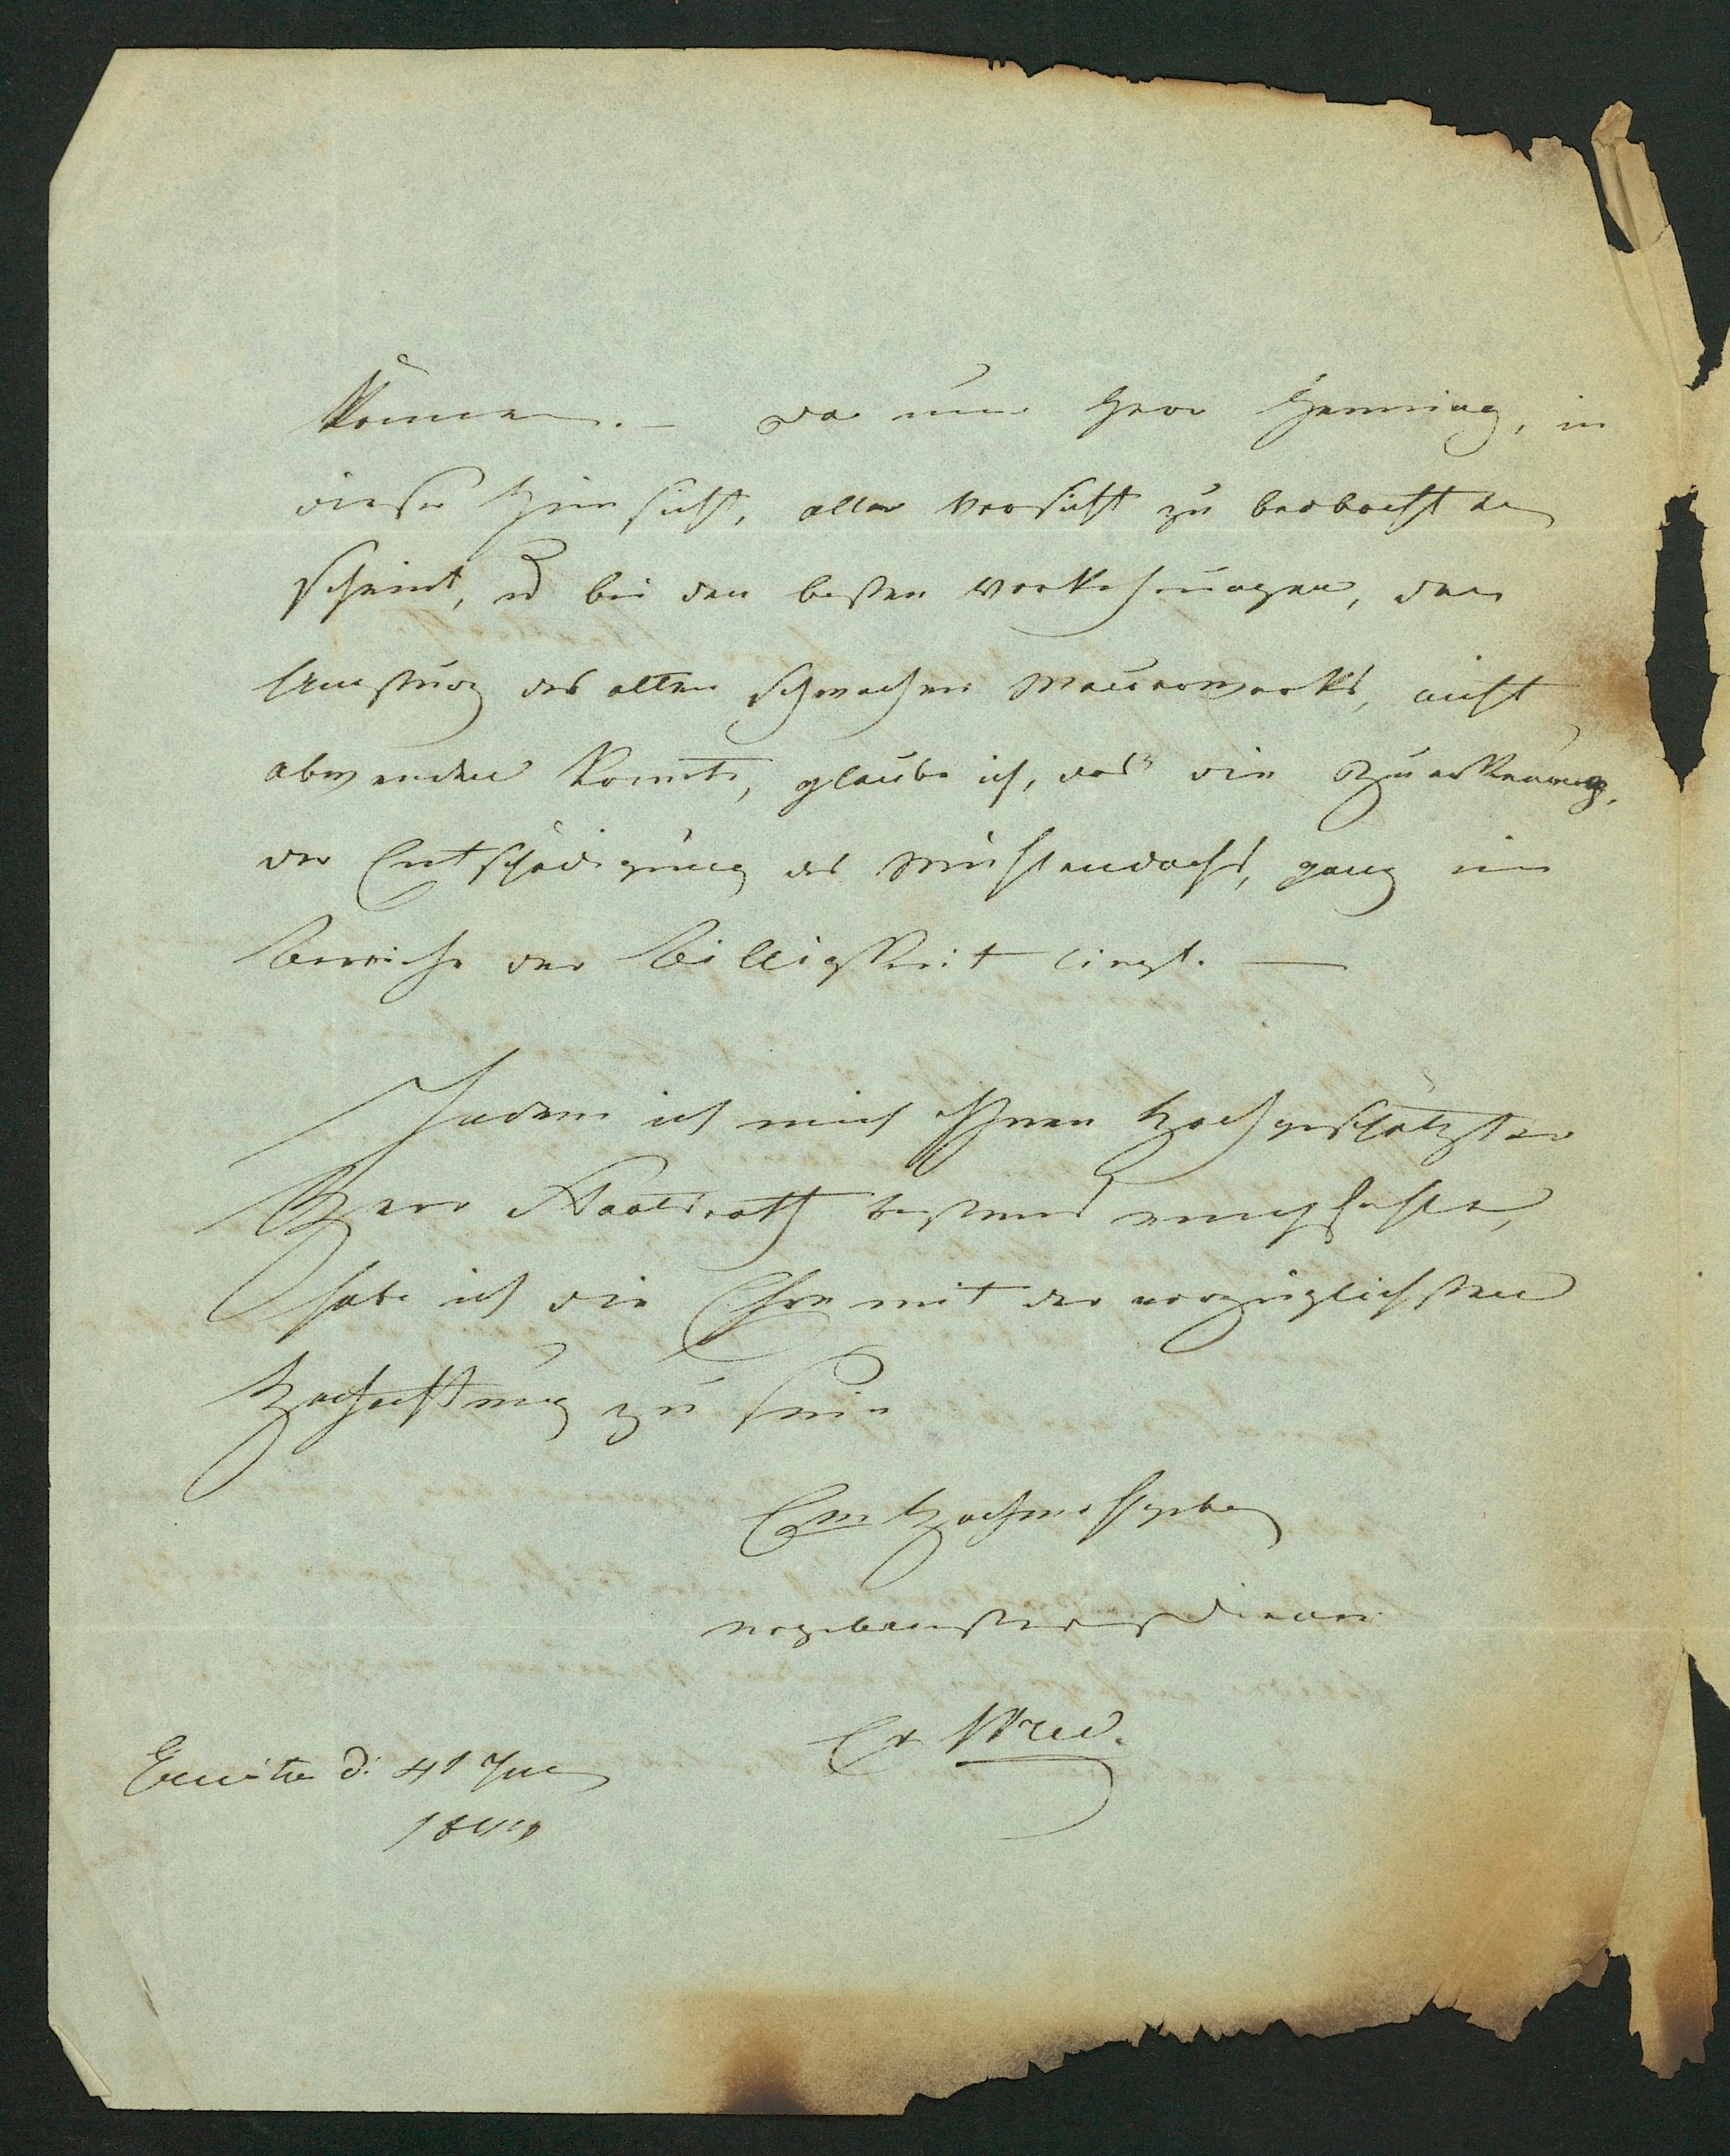 können. – Da nun Herr Henning, in
dieser Hinsicht, alle Vorsicht zu beobachten
scheint, u bei den besten Vorkehrungen, den
Umsturz des alten schwachen Mauerwerks, nicht
abwenden konnte, glaube ich, daß die Zuerkennung,
der Entschädigung des Mühlendachs, ganz im
Bereiche der Billigkeit liegt. —
Indem ich mich Ihnen hochgeschätzter
Herr Staatsrath bestens empfehle,
habe ich die Ehre mit der vorzüglichsten
Hochachtung zu sein
Ew Hochwohlgeb
ergebenster Diener
d: 4t